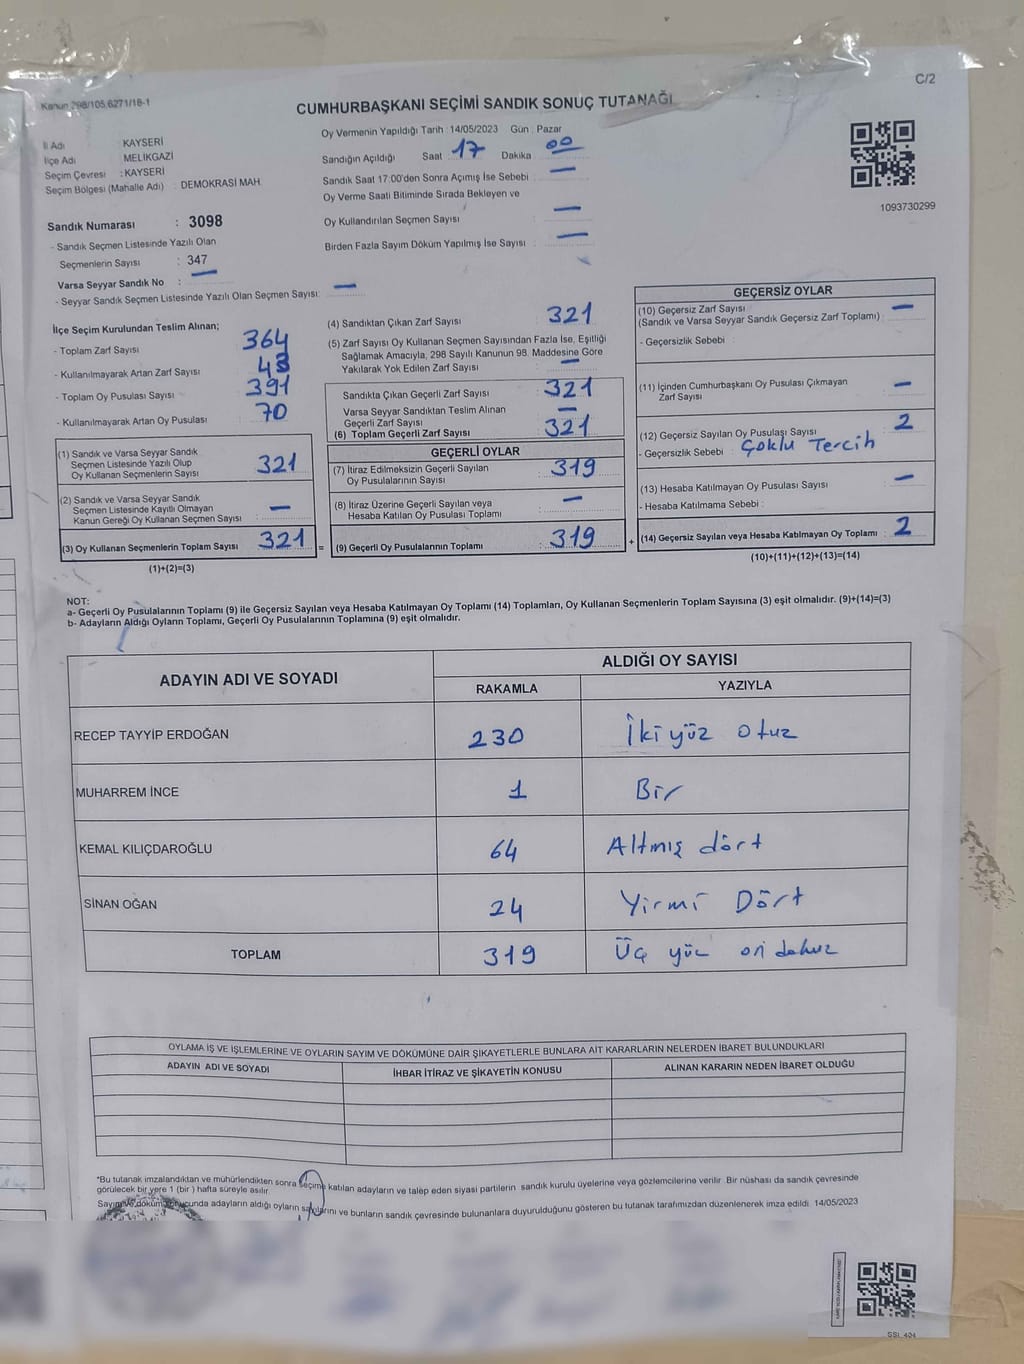 C/2
Kanun 298/105,6271/18-1
CUMHURBAŞKANI SEÇİMİ SANDIK SONUÇ TUTANAĞI
İl Adı : KAYSERİ
İlçe Adı : MELİKGAZİ
Seçim Çevresi : KAYSERİ
Seçim Bölgesi (Mahalle Adı) : DEMOKRASİ MAH.
Sandık Numarası : 3098
- Sandık Seçmen Listesinde Yazılı Olan
Seçmenlerin Sayısı : 347
Varsa Seyyar Sandık No : —
- Seyyar Sandık Seçmen Listesinde Yazılı Olan Seçmen Sayısı: —
Oy Vermenin Yapıldığı Tarih : 14/05/2023 Gün : Pazar
Sandığın Açıldığı Saat : 17 Dakika : 00
Sandık Saat 17:00'den Sonra Açımış İse Sebebi : —
Oy Verme Saati Bitiminde Sırada Bekleyen ve
Oy Kullandırılan Seçmen Sayısı : —
Birden Fazla Sayım Döküm Yapılmış İse Sayısı : —
1093730299
İlçe Seçim Kurulundan Teslim Alınan;
- Toplam Zarf Sayısı : 364
- Kullanılmayarak Artan Zarf Sayısı : 43
- Toplam Oy Pusulası Sayısı : 391
- Kullanılmayarak Artan Oy Pusulası : 70
(1) Sandık ve Varsa Seyyar Sandık
Seçmen Listesinde Yazılı Olup
Oy Kullanan Seçmenlerin Sayısı : 321
(2) Sandık ve Varsa Seyyar Sandık
Seçmen Listesinde Kayıtlı Olmayan
Kanun Gereği Oy Kullanan Seçmen Sayısı : —
(3) Oy Kullanan Seçmenlerin Toplam Sayısı : 321 =
(1)+(2)=(3)
(4) Sandıktan Çıkan Zarf Sayısı : 321
(5) Zarf Sayısı Oy Kullanan Seçmen Sayısından Fazla İse, Eşitliği
Sağlamak Amacıyla, 298 Sayılı Kanunun 98. Maddesine Göre
Yakılarak Yok Edilen Zarf Sayısı : —
Sandıkta Çıkan Geçerli Zarf Sayısı : 321
Varsa Seyyar Sandıktan Teslim Alınan
Geçerli Zarf Sayısı : —
(6) Toplam Geçerli Zarf Sayısı : 321
GEÇERLİ OYLAR
(7) İtiraz Edilmeksizin Geçerli Sayılan
Oy Pusulalarının Sayısı : 319
(8) İtiraz Üzerine Geçerli Sayılan veya
Hesaba Katılan Oy Pusulası Toplamı : —
(9) Geçerli Oy Pusulalarının Toplamı : 319 +
GEÇERSİZ OYLAR
(10) Geçersiz Zarf Sayısı : —
(Sandık ve Varsa Seyyar Sandık Geçersiz Zarf Toplamı)
- Geçersizlik Sebebi :
(11) İçinden Cumhurbaşkanı Oy Pusulası Çıkmayan
Zarf Sayısı : —
(12) Geçersiz Sayılan Oy Pusulası Sayısı : 2
- Geçersizlik Sebebi : Çoklu Tercih
(13) Hesaba Katılmayan Oy Pusulası Sayısı : —
- Hesaba Katılmama Sebebi :
(14) Geçersiz Sayılan veya Hesaba Katılmayan Oy Toplamı : 2
(10)+(11)+(12)+(13)=(14)
NOT:
a- Geçerli Oy Pusulalarının Toplamı (9) ile Geçersiz Sayılan veya Hesaba Katılmayan Oy Toplamı (14) Toplamları, Oy Kullanan Seçmenlerin Toplam Sayısına (3) eşit olmalıdır. (9)+(14)=(3)
b- Adayların Aldığı Oyların Toplamı, Geçerli Oy Pusulalarının Toplamına (9) eşit olmalıdır.
ADAYIN ADI VE SOYADI ALDIĞI OY SAYISI
RAKAMLA YAZIYLA
RECEP TAYYİP ERDOĞAN 230 İki yüz otuz
MUHARREM İNCE 1 Bir
KEMAL KILIÇDAROĞLU 64 Altmış dört
SİNAN OĞAN 24 Yirmi Dört
TOPLAM 319 Üç yüz on dokuz
OYLAMA İŞ VE İŞLEMLERİNE VE OYLARIN SAYIM VE DÖKÜMÜNE DAİR ŞİKAYETLERLE BUNLARA AİT KARARLARIN NELERDEN İBARET BULUNDUKLARI
ADAYIN ADI VE SOYADI İHBAR İTİRAZ VE ŞİKAYETİN KONUSU ALINAN KARARIN NEDEN İBARET OLDUĞU
*Bu tutanak imzalandıktan ve mühürlendikten sonra seçime katılan adayların ve talep eden siyasi partilerin sandık kurulu üyelerine veya gözlemcilerine verilir. Bir nüshası da sandık çevresinde
görülecek bir yere 1 (bir ) hafta süreyle asılır.
Sayım ve döküm sonucunda adayların aldığı oyların sayılarını ve bunların sandık çevresinde bulunanlara duyurulduğunu gösteren bu tutanak tarafımızdan düzenlenerek imza edildi. 14/05/2023
SSI_404